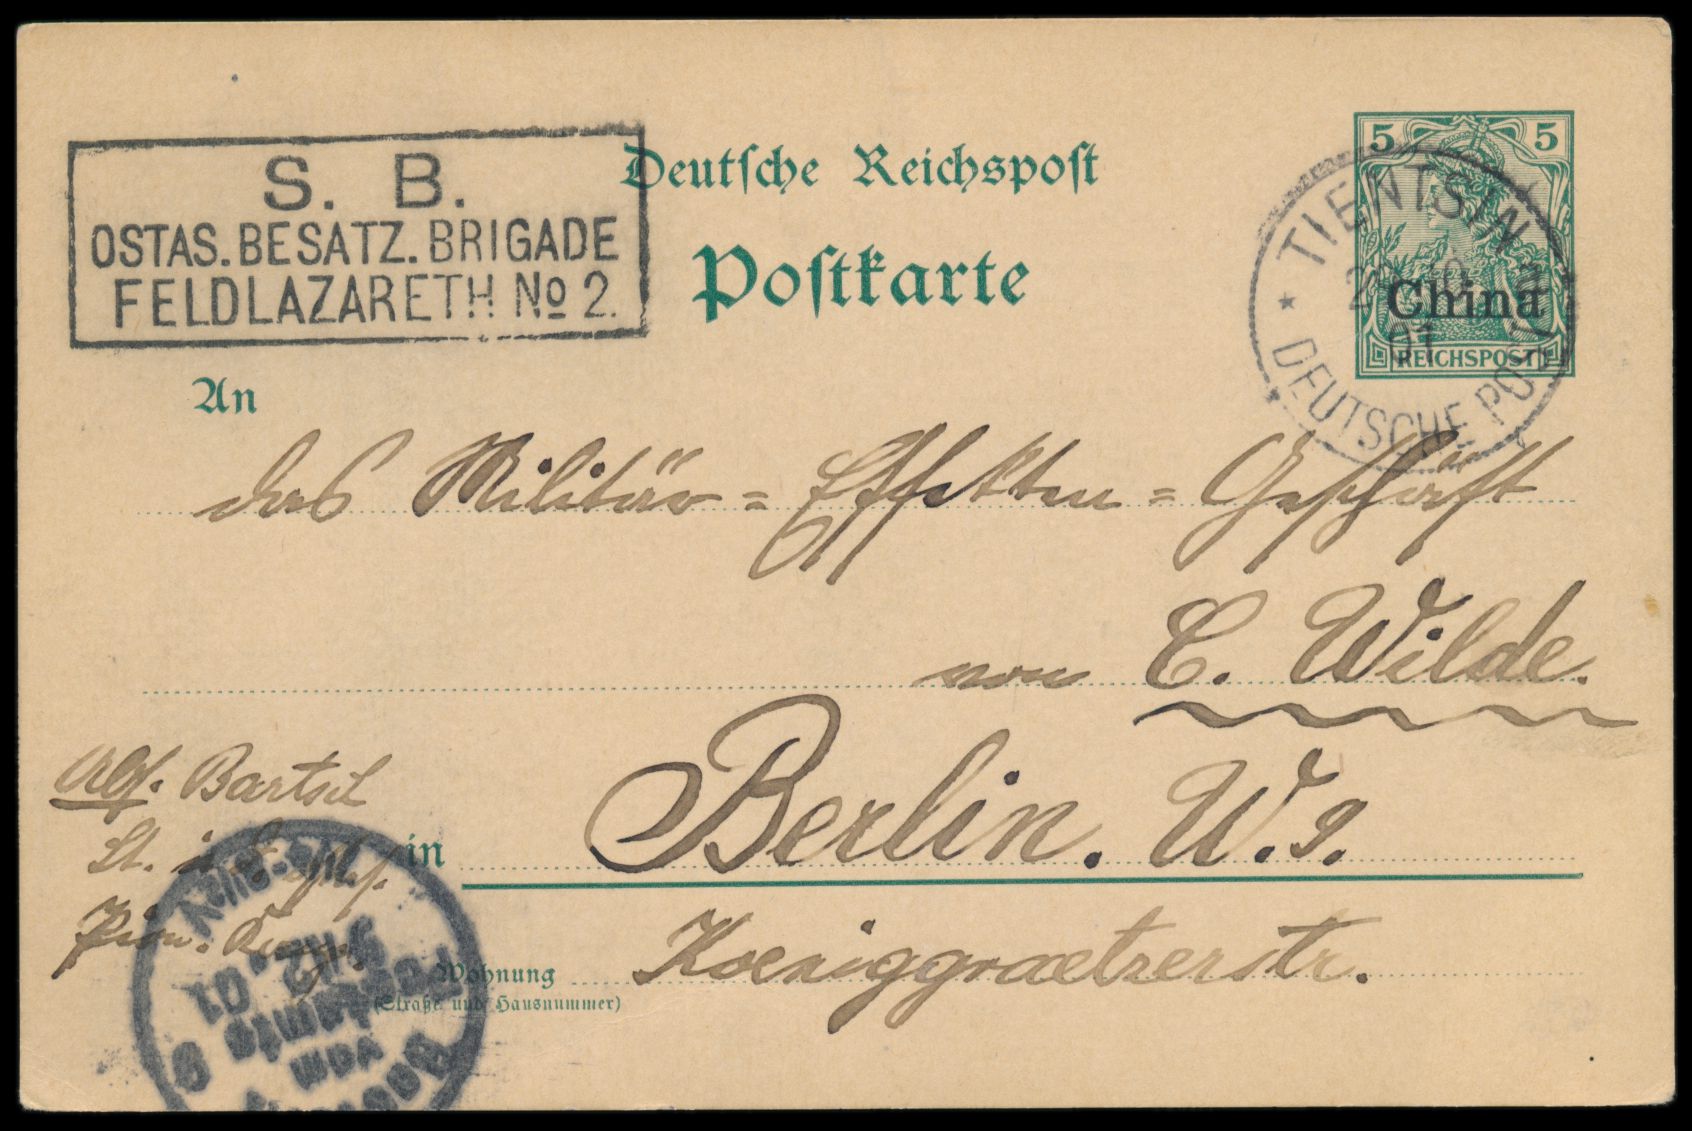 S. B.
OSTAS. BESATZ. BRIGADE
FELDLAZARETH No 2.
Deutsche Reichspost
Postkarte
5 5
China
REICHSPOST
TIENTSIN
01
DEUTSCHE POST
An
das Militär = Effekten = Geschäft
von C. Wilde.
in Berlin. W. 9.
Wohnung Koeniggraetzerstr.
(Straße und Hausnummer)
Bartsch
Lt. i. d.
01
Postamts 9